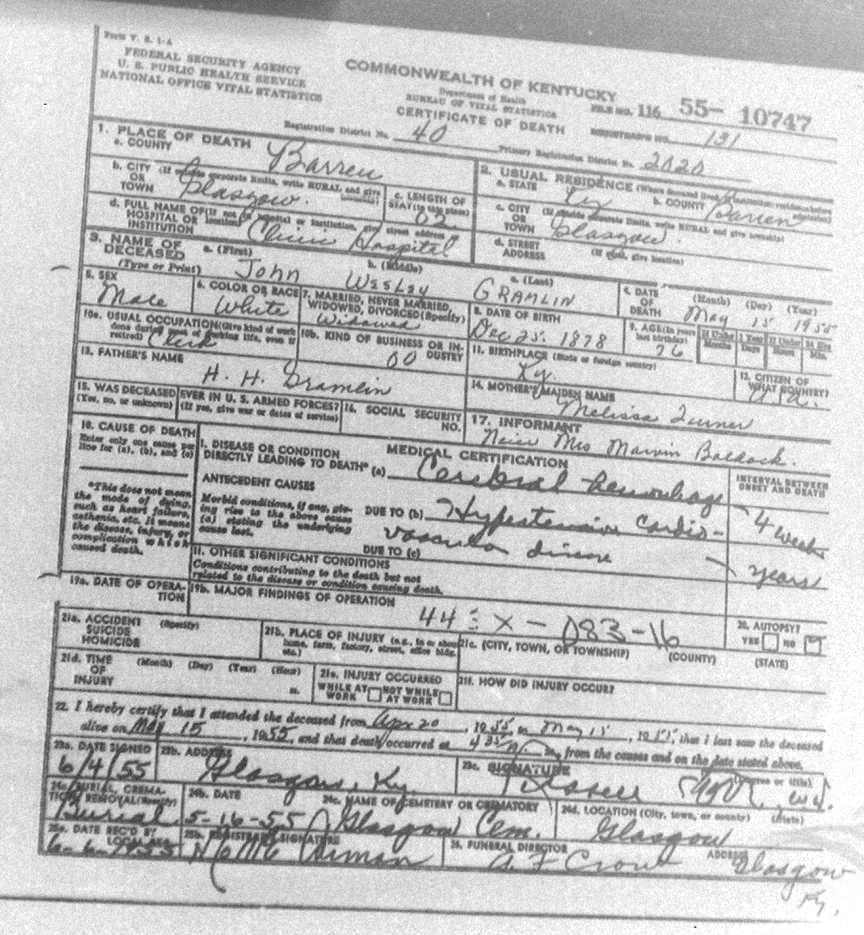 Form V. S. 1-A
FEDERAL SECURITY AGENCY
U. S. PUBLIC HEALTH SERVICE
NATIONAL OFFICE VITAL STATISTICS
COMMONWEALTH OF KENTUCKY
Department of Health
BUREAU OF VITAL STATISTICS
CERTIFICATE OF DEATH
FILE NO. 116 55- 10747
REGISTRAR'S NO. 131
Registration District No. 40
Primary Registration District No. 2020
1. PLACE OF DEATH
a. COUNTY Barren
2. USUAL RESIDENCE
a. STATE Ky b. COUNTY Barren
b. CITY OR TOWN Glasgow
c. LENGTH OF STAY (in this place)
c. CITY OR TOWN Glasgow
d. FULL NAME OF HOSPITAL OR INSTITUTION Clinic Hospital
d. STREET ADDRESS (If rural, give location)
3. NAME OF DECEASED (Type or Print)
a. (First) John b. (Middle) Wesley c. (Last) GRAMLIN
4. DATE OF DEATH (Month) (Day) (Year) May 15 1955
5. SEX Male
6. COLOR OR RACE White
7. MARRIED, NEVER MARRIED, WIDOWED, DIVORCED (Specify) Widowed
8. DATE OF BIRTH Dec 25. 1878
9. AGE (In years last birthday) 76
10a. USUAL OCCUPATION (Give kind of work done during most of working life, even if retired) Clerk
10b. KIND OF BUSINESS OR INDUSTRY 00
11. BIRTHPLACE (State or foreign country) Ky.
12. CITIZEN OF WHAT COUNTRY?
13. FATHER'S NAME H. H. Gramlin
14. MOTHER'S MAIDEN NAME Melissa Turner
15. WAS DECEASED EVER IN U. S. ARMED FORCES?
(Yes, no, or unknown) (If yes, give war or dates of service)
16. SOCIAL SECURITY NO.
17. INFORMANT
Mrs Marvin Baldock.
18. CAUSE OF DEATH
Enter only one cause per line for (a), (b), and (c)
MEDICAL CERTIFICATION
INTERVAL BETWEEN ONSET AND DEATH
I. DISEASE OR CONDITION DIRECTLY LEADING TO DEATH* (a) Cerebral hemorrhage
4 weeks
*This does not mean the mode of dying, such as heart failure, asthenia, etc. It means the disease, injury, or complication which caused death.
ANTECEDENT CAUSES
Morbid conditions, if any, giving rise to the above cause (a) stating the underlying cause last.
DUE TO (b) Hypertensive Cardio-
vascular disease
years
DUE TO (c)
II. OTHER SIGNIFICANT CONDITIONS
Conditions contributing to the death but not related to the disease or condition causing death.
19a. DATE OF OPERATION
19b. MAJOR FINDINGS OF OPERATION
X - 083-16
20. AUTOPSY?
YES NO
21a. ACCIDENT SUICIDE HOMICIDE (Specify)
21b. PLACE OF INJURY (e.g., in or about home, farm, factory, street, office bldg., etc.)
21c. (CITY, TOWN, OR TOWNSHIP) (COUNTY) (STATE)
21d. TIME OF INJURY (Month) (Day) (Year) (Hour) m.
21e. INJURY OCCURRED
WHILE AT WORK NOT WHILE AT WORK
21f. HOW DID INJURY OCCUR?
22. I hereby certify that I attended the deceased from Apr 20, 1955 to May 15, 1955, that I last saw the deceased
alive on May 15, 1955, and that death occurred at m., from the causes and on the date stated above.
23a. DATE SIGNED 6/4/55
23b. ADDRESS Glasgow, Ky.
23c. SIGNATURE (Degree or title)
24a. BURIAL, CREMATION, REMOVAL (Specify) Burial
24b. DATE 5-16-55
24c. NAME OF CEMETERY OR CREMATORY Glasgow Cem.
24d. LOCATION (City, town, or county) (State) Glasgow
25a. DATE REC'D BY LOCAL REG. 6-6-1955
25b. REGISTRAR'S SIGNATURE
26. FUNERAL DIRECTOR A. F. Crow
ADDRESS Glasgow
Ky.